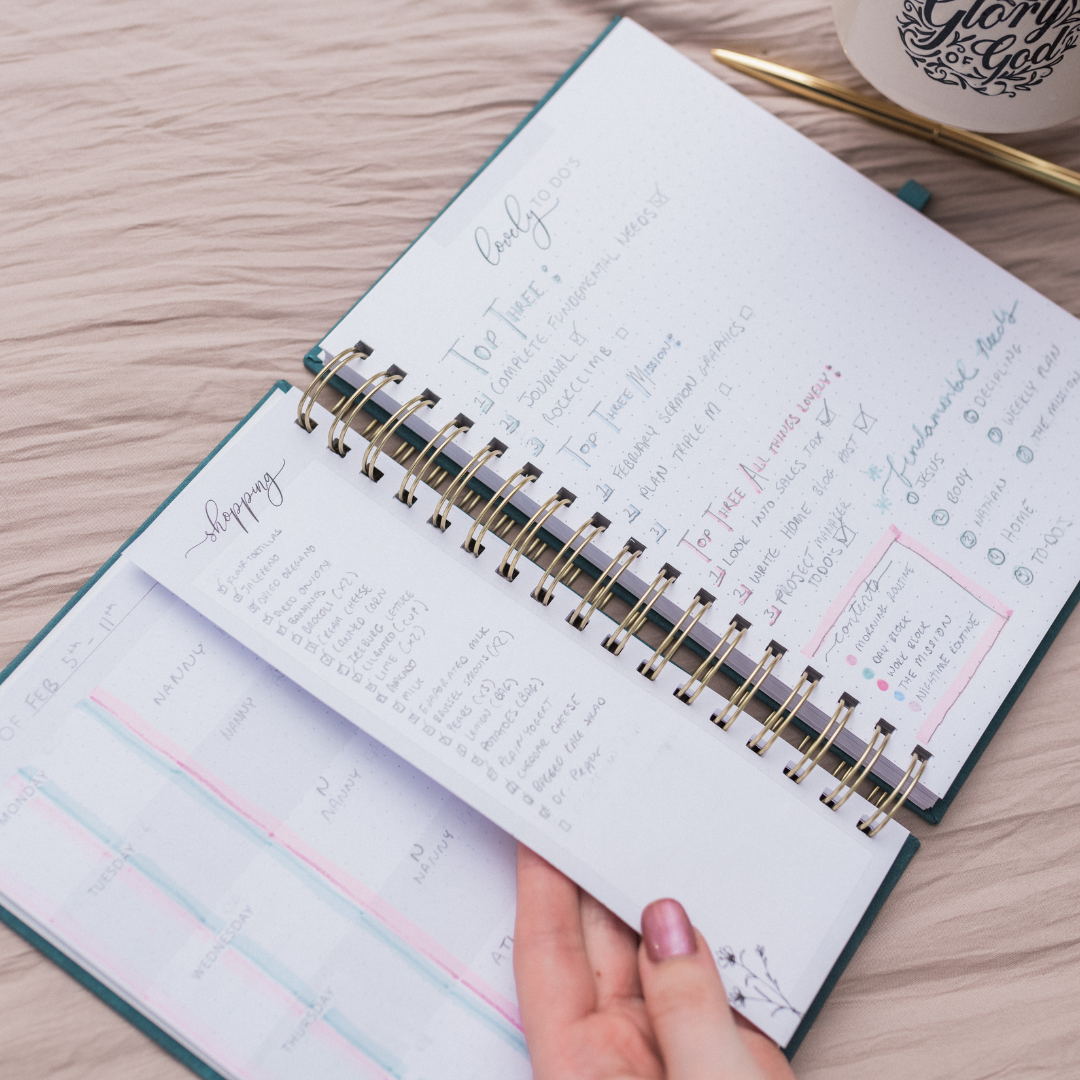 Glory
OF
God
lovely TO DO'S
TOP THREE:
1) COMPLETE FUNDEMENTAL NEEDS
2) JOURNAL
3) ROCKCLIMB
TOP THREE MISSION:
1) FEBRUARY SERMON GRAPHICS
2) PLAN TRIPLE M
3)
TOP THREE ALL THINGS LOVELY:
1) LOOK INTO SALES TAX
2) WRITE HOME BLOG POST
3) PROJECT MANAGER
TODO'S
fundamental needs
① JESUS
② BODY
③ NATHAN
④ HOME
⑤ TO-DO'S
⑥ DECIPLING
⑦ WEEKLY PLAN
⑧ THE MISSION
contents
MORNING ROUTINE
DAY BLOCK
WORK BLOCK
THE MISSION
NIGHTIME ROUTINE
shopping
FLOUR TORTILLAS
JALEPENO
DRIED OREGANO
DRIED ONIONS
BANANAS
BROCOLI (x2)
CREAM CHEESE
CANNED CORN
ICEBURG LETTUCE
CILANTRO (CUP)
LIME (x2)
AVOCADO
MILK
EVAPORATED MILK
PEARS (x5)
LEMON (BAG)
POTATOES (BAG)
PLAIN YOGERT
CHEDDAR CHEESE
BAGGED KALE SALAD
OF FEB 5th - 11th
NANNY
NANNY
N
NANNY
N
NANNY
MONDAY
TUESDAY
WEDNESDAY
THURSDAY